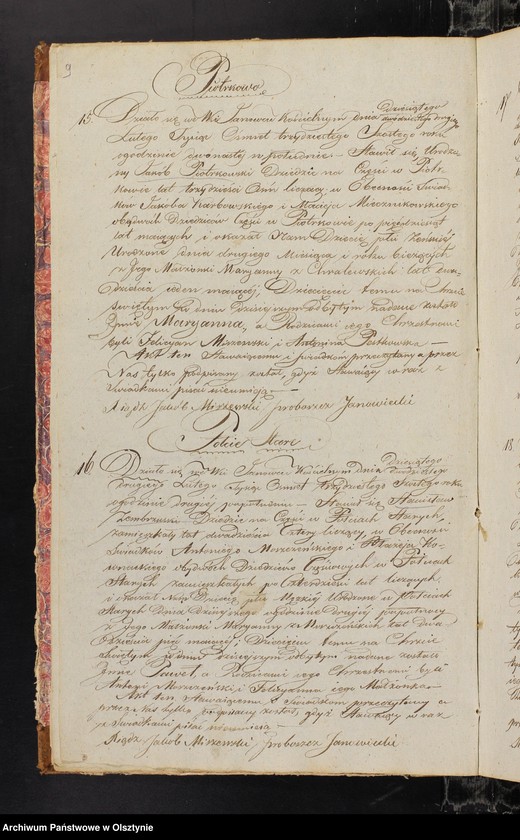 9
Piotrkowo
15. Działo się we Wsi Janowcu Kościelnym dnia dziesiątego
Lutego Tysiąc Osmset trzydziestego Szostego roku
ogodzinie dwonastej w południe – Stawił się Urodzo-
ny Jakób Piotrkowski Dziedzic na Części w Piotr-
kowie lat trzydzieści liczący w Obecności Świad-
ków Jakoba Narbowskiego i Macieja Miecznikowskiego
obydwóch Dziedziców Części w Piotrkowie po pięćdziesiąt
lat maiących i okazał Nam Dziecię płci żeńskiej
Urodzone dnia drugiego Miesiąca i roku bieżących
z Jego Małżonki Maryanny z Chmielewskich lat dwa-
dzieścia jeden maiącej, Dziecięciu temu na Chrzcie
świętym w dniu dzisiejszym odbytym nadane zostało
Imie Maryanna, a Rodzicami jego Chrzestnemi
byli Felicyan Mszewski i Antonina
Akt ten Stawaiącemu i świadkom przeczytany a przez
Nas tylko podpisany został, gdyż Stawaiący wraz z
Świadkami pisać nieumieią –
Xiądz Jakób Miszewski proboszcz Janowiecki
Połcie Stare
16. Działo się we Wsi Janowcu Kościelnym dnia dziesiątego
Lutego Tysiąc Osmset trzydziestego Szostego roku
ogodzinie drugiej popołudniu – Stawił się Stanisław
Dziedzic na Części w Połciach Starych,
zamieszkały lat dwadzieścia Cztery liczący, w Obecności
Świadków Antoniego i Błażeja
obydwóch Dziedziców Cząstkowych w Połciach
Starych zamieszkałych po Czterdzieści lat liczących
i okazał Nam Dziecię płci Męzkiej Urodzone w Połciach
Starych Dnia dzisiejszego ogodzinie drugiej popółnocy
z Jego Małżonki Maryanny z lat dwa-
dzieścia pięć maiącej, Dziecięciu temu na Chrzcie
świętym w dniu dzisiejszym odbytym nadane zostało
Imie Paweł, a Rodzicami jego Chrzestnemi byli
Antoni i Felicyanna jego Małżonka –
Akt ten Stawaiącemu i Świadkom przeczytany a
przez Nas tylko podpisany został, gdyż Stawaiący wraz
z Świadkami pisać nieumieią –
Xiądz Jakób Miszewski proboszcz Janowiecki
17
18
Archiwum Państwowe w Olsztynie